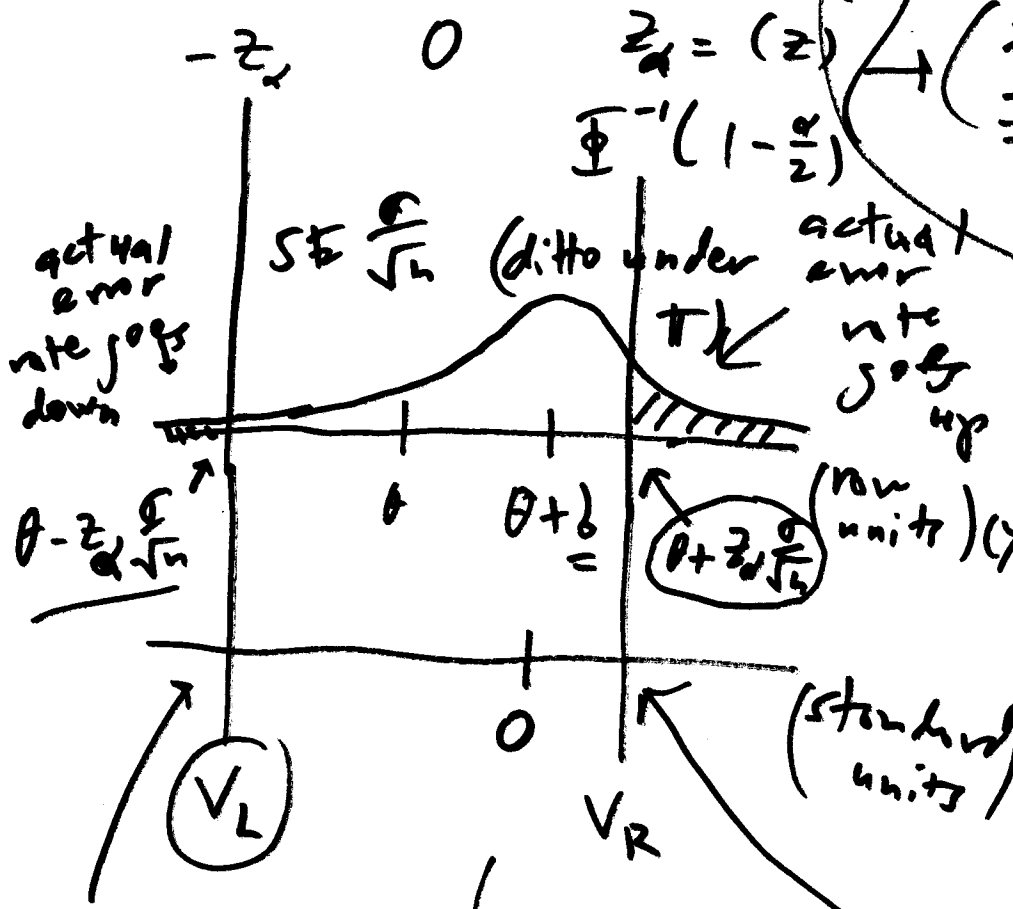 -z_α 0 z_α = (z)
Φ^{-1}(1 - α/2)
actual
error
rate goes
down
SE σ/√n (ditto under
π)
actual
error
rate
goes
up
θ - z_α σ/√n θ θ + b θ + z_α σ/√n (raw
units)
0
V_L V_R (standard
units)